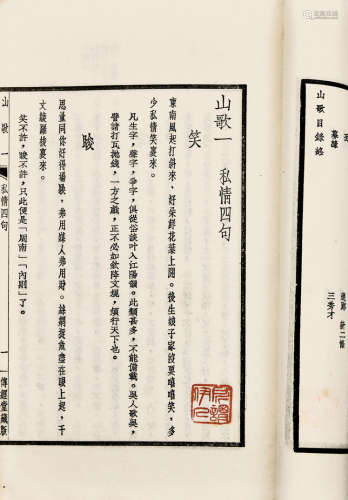 山歌目錄終
三秀才
山歌一　私情四句
笑
東南風起打斜來、好朵鮮花葉上開。後生娘子家沒要嘻嘻笑、多
少私情笑裏來。
凡生字，聲字，爭字，俱從俗談叶入江陽韻。此類甚多，不能備載。吳人歌吳，
譬諸打瓦拋錢，一方之戲，正不必如欽降文規，須行天下也。
睃
思量同你好得場騃，弗用媒人弗用財。絲網捉魚盡在眼上起，千
丈綾羅梭裏來。
笑不許，睃不許，只此便是「周南」「內則」了。
山歌一
私情四句
一
傳經堂藏版